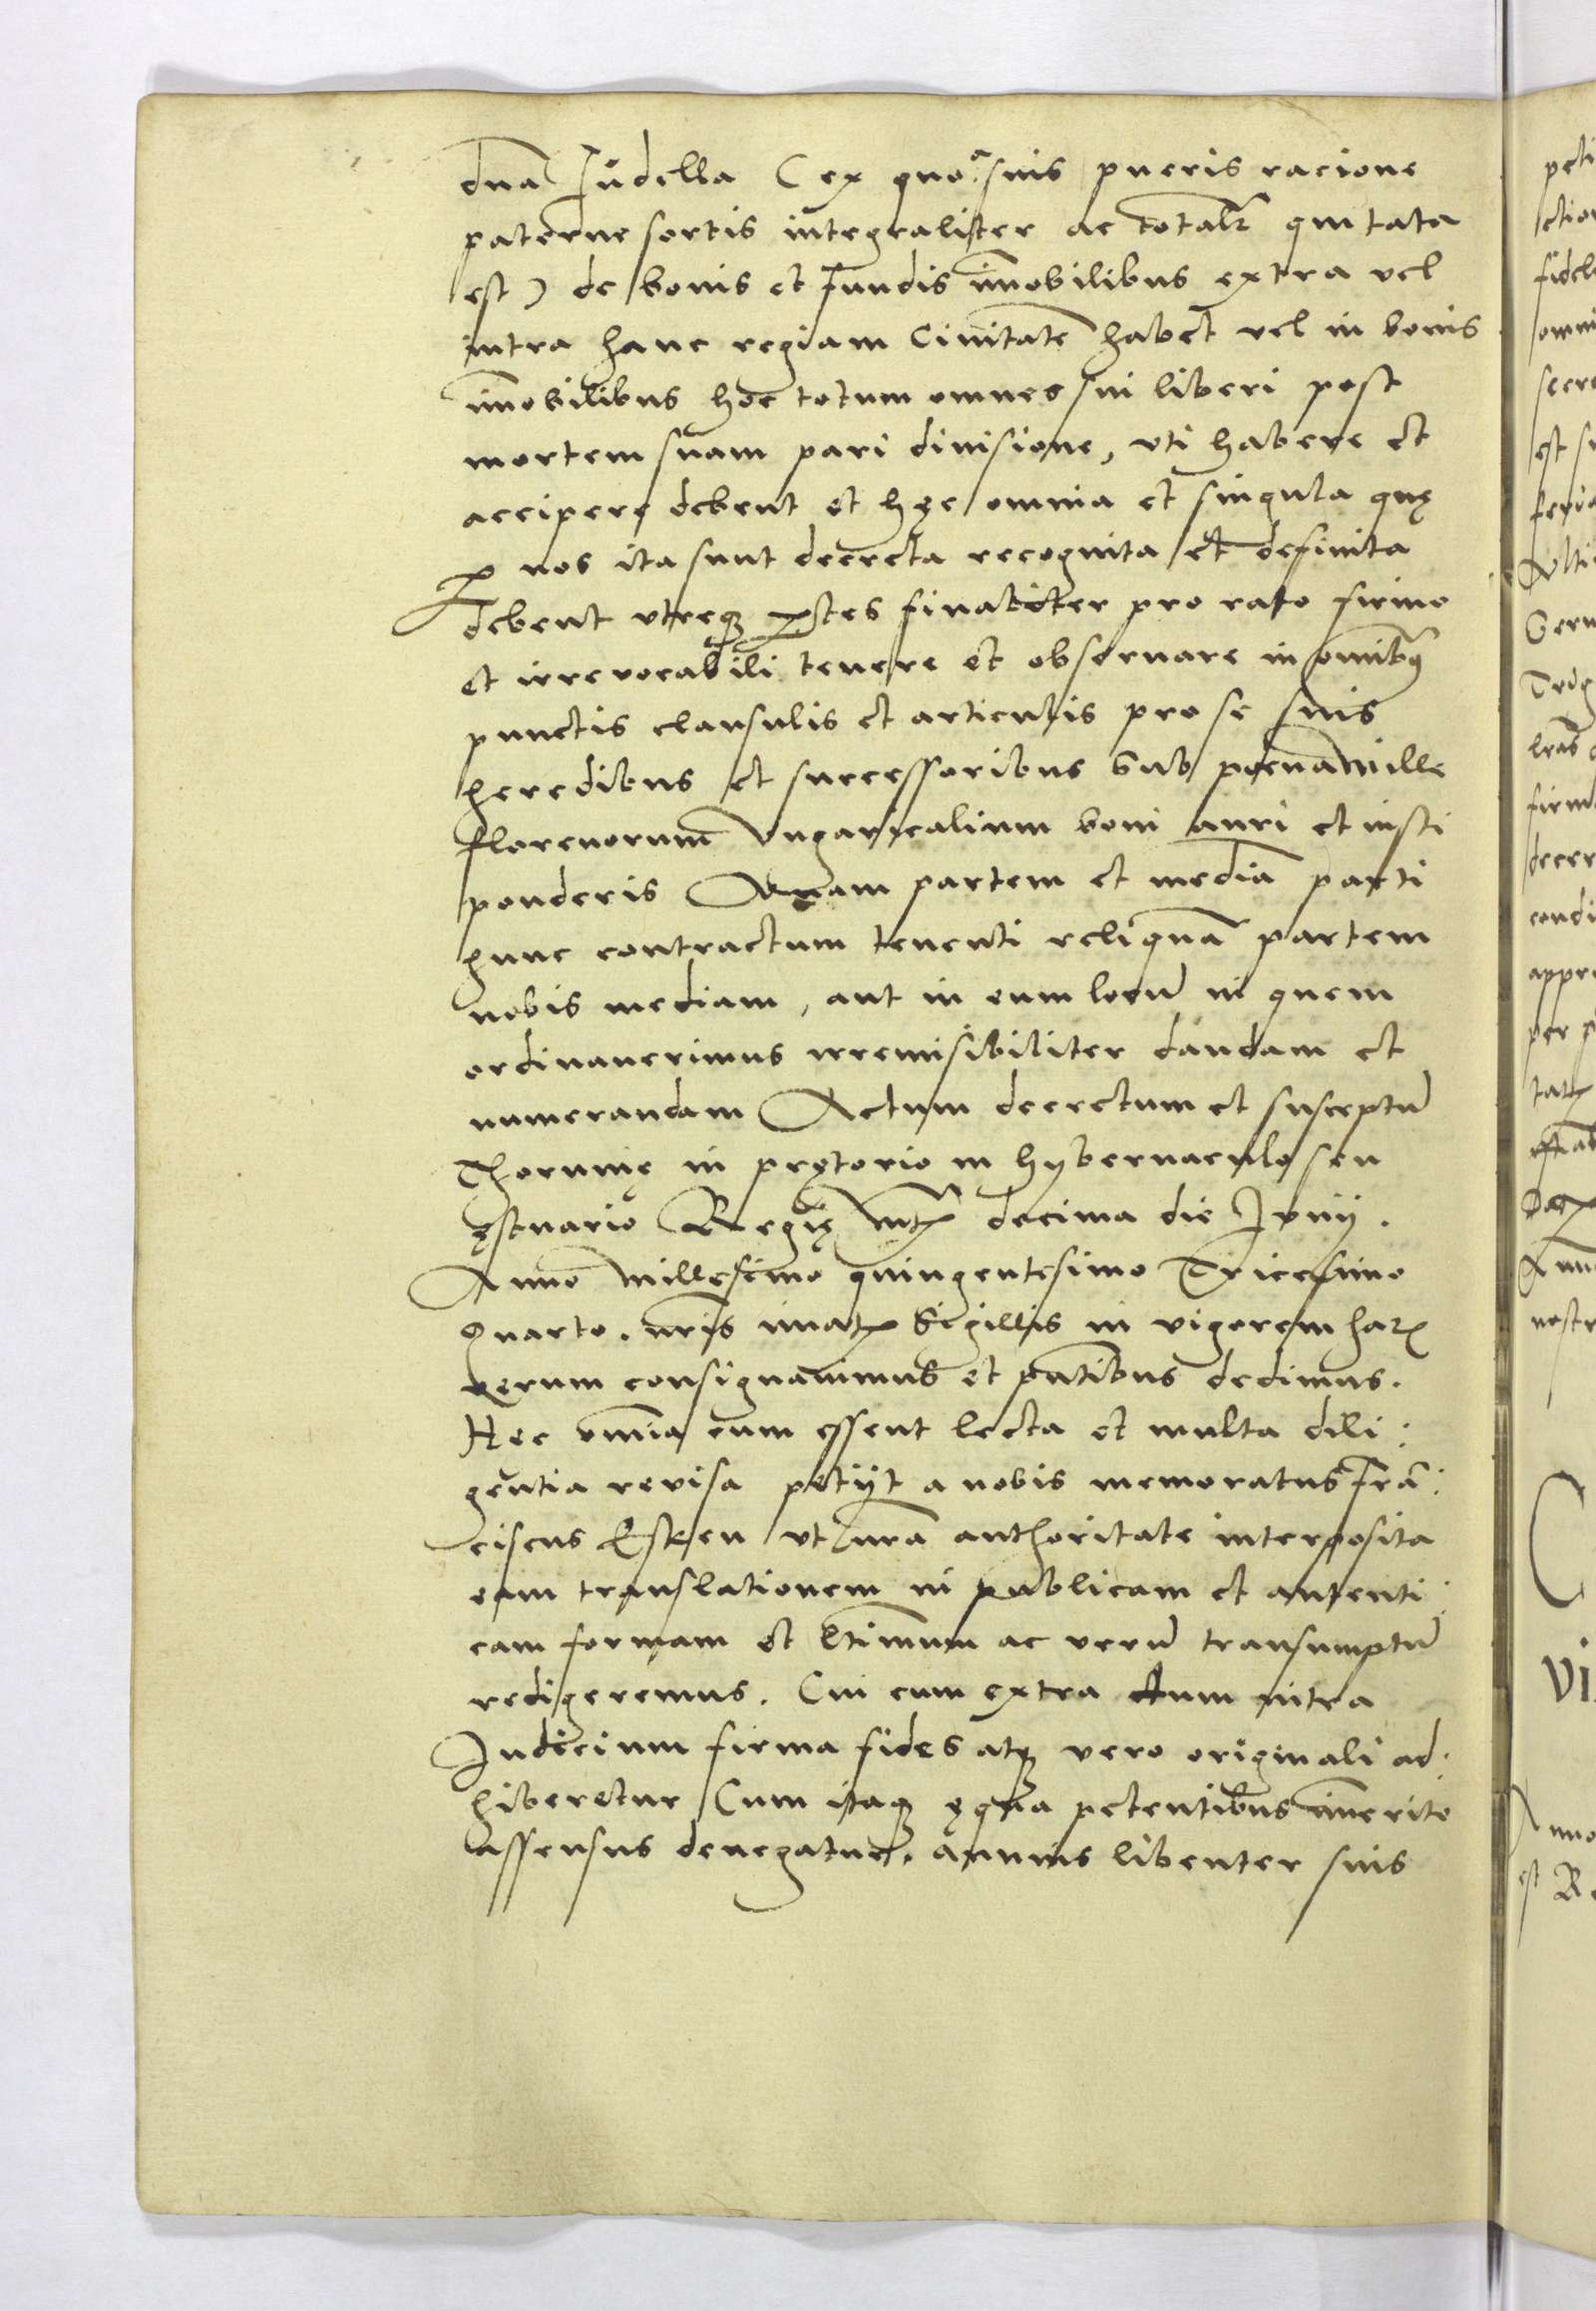 dn̄a Iudella (ex quo a suis pueris racione
paterne sortis integraliter ac totalr̄ quitata
est) de bonis et fundis im̄obilibus extra vel
intra hanc regiam Ciuitatē habet vel in bonis
im̄obilibus hoc totum omnes sui liberi post
mortem suam pari diuisione, vti habere et
accipere debent et hęc omnia et singula quę
ꝑ nos ita sunt decreta recognita et definita
debent vtreqꝫ ꝑtes finaliter pro rato firmo
et irreuocabili tenere et obseruare in om̄ibꝰ
punctis clausulis et articulis pro se suis
heredibus et successoribus sub poena mille
florenorum Vngaricalium boni auri et iusti
ponderis Vnam partem et mediā parti
hunc contractum tenenti reliquā partem
nobis mediam, aut in eum locū in quem
ordinauerimus irremisibiliter dandam et
numerandam Actum decretum et susceptū
Thorunię in prętorio in hybernaculo seu
ęstuario Regię mtꝭ decima die Junij.
Anno Millesimo quingentesimo Tricesimo
Quarto. nr̄is innatꝭ Sigillis in vigorem harꝝ
rerum consignauimus et partibus dedimus.
Hec om̄ia cum essent lecta et multa dili:
gentia reuisa petijt a nobis memoratus Frā:
ciscus Esken vt nr̄a authoritate interposita
eam translationem in publicam et autenti:
cam formam et l̄timum ac verū transumptū
redigeremus. Cui cum extra tum intra
Iudicium firma fides atqꝫ vero originali ad:
hiberetur Cum itaqꝫ ęqua petentibus im̄erito
assensus denegatur. annuis libenter suis